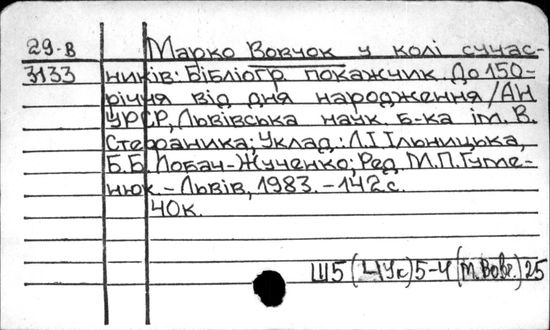 29-В Марко Вовчок у колі сучас-
3133 ників: Бібліогр. покажчик. До 150-
річчя від дня народження/АН
УРСР, Львівська наук. б-ка ім. В.
Стефаника; Уклад.: Л.І. Ільницька,
Б.Б. Лобач-Жученко; Ред. М.П. Гуме-
нюк. – Львів, 1983. – 142 с.
40к.
Ш5(4Ук)5-4(М.Вовч.)25